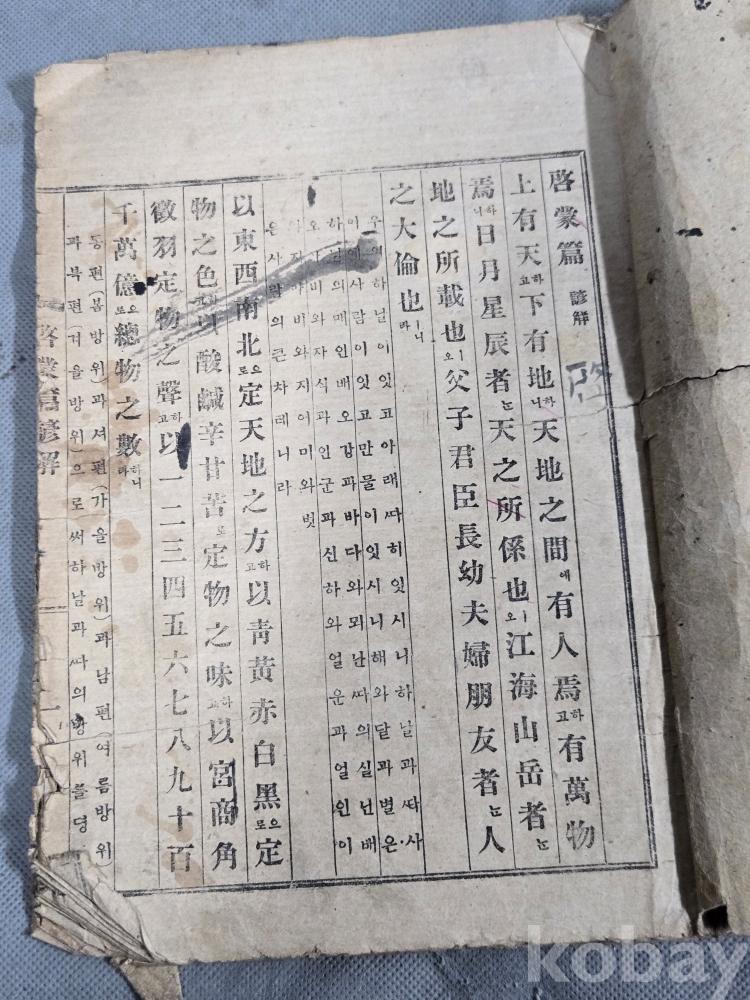 啓蒙篇 諺解
啓
上有天하고下有地하니天地之間에有人焉하고有萬物
焉하니日月星辰者는天之所係也ㅣ오江海山岳者는
地之所載也ㅣ오父子君臣長幼夫婦朋友者는人
之大倫也ㅣ니라
우에하날이잇고아래ᄯᅡ히잇시니하날과ᄯᅡ사
이에사람이잇고만물이잇시니해와달과별은
하날의매인배오강과바다와뫼난ᄯᅡ의실넌배
오아비와자식과인군과신하와얼운과얼인이
지아비와지어미와벗
은사람의큰차례니라
以東西南北으로定天地之方하고以靑黃赤白黑으로定
物之色하고以酸鹹辛甘苦로定物之味하고以宮商角
徵羽定物之聲하고以一二三四五六七八九十百
千萬億으로總物之數하니라
동편(봄방위)과셔편(가을방위)과남편(여름방위)
과북편(겨울방위)으로써하날과ᄯᅡ의방위를뎡
啓蒙篇諺解
kobay